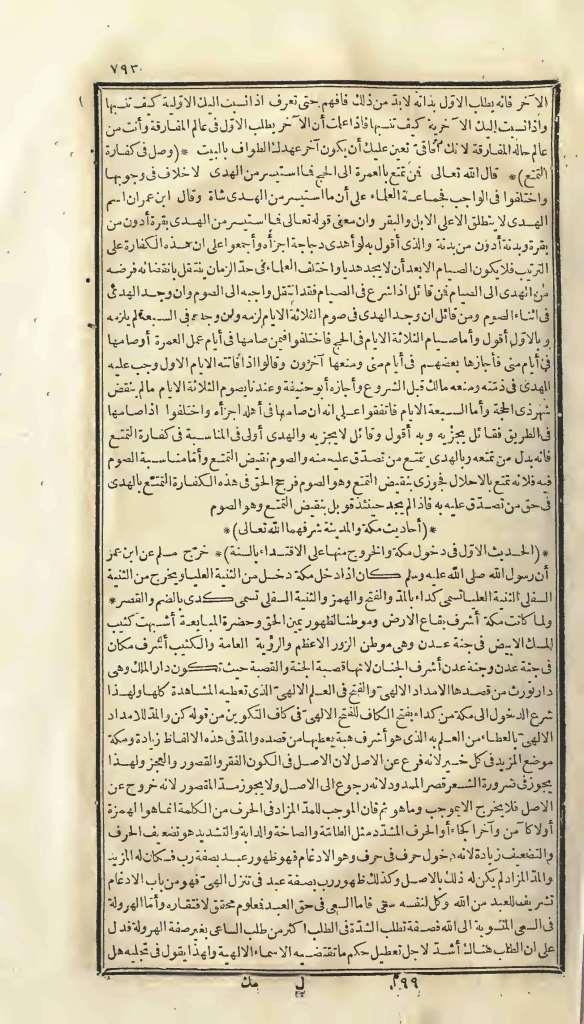 ٧٩٣
الآخر فانه يطلب الاول بذاته لابد من ذلك فافهم حتى تعرف اذا نسبت اليك الاولية كيف تنسبها
واذا نسبت اليك الآخرية كيف تنسبها فاذا علمت أن الآخر يطلب الاول في عالم المفارقة وأنت من
عالم حاله المفارقة لانك آفاقى تعين عليك أن يكون آخر عهدك الطواف بالبيت *(وصل فى كفارة
التمتع)* قال الله تعالى فمن تمتع بالعمرة الى الحج فما استيسر من الهدى لا خلاف فى وجوبها
واختلفوا فى الواجب فجماعة العلماء على أن ما استيسر من الهدى شاة وقال ابن عمر ان اسم
الهدى لا ينطلق الا على الابل والبقر وان معنى قوله تعالى فما استيسر من الهدى بقرة أدون من
بقرة وبدنة أدون من بدنة والذى أقول به لو أهدى دجاجة اجزأه وأجمعوا على ان هذه الكفارة على
الترتيب فلا يكون الصيام الا بعد أن لا يجد هديا واختلف العلماء فى حد الزمان ينتقل بانقضائه فرضه
من الهدى الى الصيام فمن قائل اذا شرع فى الصيام فقد انتقل واجبه الى الصوم وان وجد الهدى
فى اثناء الصوم ومن قائل ان وجد الهدى فى صوم الثلاثة الايام لزمه وان وجده فى السبعة لم يلزمه
وبالاول أقول وأما صيام الثلاثة الايام فى الحج فاختلفوا فيمن صامها فى أيام عمل العمرة أو صامها
فى أيام منى فأجازها بعضهم فى أيام منى ومنعها آخرون وقالوا اذا فاتته الايام الاول وجب عليه
الهدى فى ذمته ومنعه مالك قبل الشروع وأجازه أبو حنيفة وعندنا يصوم الثلاثة الايام مالم ينقض
شهر ذى الحجة وأما السبعة الايام فاتفقوا على انه ان صامها فى أهله اجزأه واختلفوا اذا صامها
فى الطريق فقائل يجزيه وبه أقول وقائل لا يجزيه والهدى أولى فى المناسبة فى كفارة التمتع
فانه بدل من تمتعه وبالهدى يتمتع من تصدق عليه منه والصوم نقيض التمتع وأما مناسبة الصوم
فيه فلانه تمتع بالاحلال فجوزى بنقيض التمتع وهو الصوم فرجح الحق فى هذه الكفارة التمتع بالهدى
فى حق من تصدق عليه به فاذا لم يجد حينئذ قوبل بنقيض التمتع وهو الصوم
*(أحاديث مكة والمدينة شرفهما الله تعالى)*
*(الحديث الاول فى دخول مكة والخروج منها على الاقتداء بالسنة)* خرج مسلم عن ابن عمر
أن رسول الله صلى الله عليه وسلم كان اذا دخل مكة دخل من الثنية العليا ويخرج من الثنية
السفلى الثنية العليا تسمى كداء بالمد والفتح والهمز والثنية السفلى تسمى كدى بالضم والقصر *
ولما كانت مكة أشرف بقاع الارض وموطنا لظهور يمين الحق وحضرة المبايعة أشبهت كثيب
المسك الابيض فى جنة عدن وهى موطن الزور الاعظم والرؤية العامة والكثيب أشرف مكان
فى جنة عدن وجنة عدن أشرف الجنان لانها قصبة الجنة والقصبة حيث تكون دار الملك وهى
دار تورث من قصدها الامداد الالهى والفتح فى العلم الالهى الذى تعطيه المشاهدة كلها ولهذا
شرع الدخول الى مكة من كداء بفتح الكاف للفتح الالهى فى كاف التكوين من قوله كن والمد للامداد
الالهى بالعطاء من العلم به الذى هو أشرف هبة يعطيها من قصده والمد فى هذه الالفاظ زيادة ومكة
موضع المزيد فى كل خير لانه فرع عن الاصل لان الاصل فى الكون الفقر والقصور والعجز ولهذا
يجوز فى ضرورة الشعر قصر الممدود لانه رجوع الى الاصل ولا يجوز مد المقصور لانه خروج عن
الاصل فلا يخرج الا بموجب وما هو ثم فان الموجب للمد المزاد فى الحرف من الكلمة انما هو الهمزة
أولا كآمن وآخرا كجاء أو الحرف المشدد مثل الطامة والصاخة والدابة والتشديد هو تضعيف الحرف
والتضعيف زيادة لانه دخول حرف فى حرف وهو الادغام فهو ظهور عبد بصفة رب فكان له المزيد
والمد المزاد لم يكن له ذلك بالاصل وكذلك ظهور رب بصفة عبد فى تنزل الهى فهو من باب الادغام
تشريف للعبد من الله وكل لنفسه سعى فاما السعى فى حق العبد فعلوم محقق لافتقاره وأما الهرولة
فى السعى المنسوبة الى الله فصفة تطلب الشدة فى الطلب اكثر من طلب الساعى بغير صفة الهرولة فدل
على ان الطلب هناك أشد لاجل تعطيل حكم ما تقتضيه الاسماء الالهية ولهذا يقول فى تجليه هل
١٩٩ ل مك